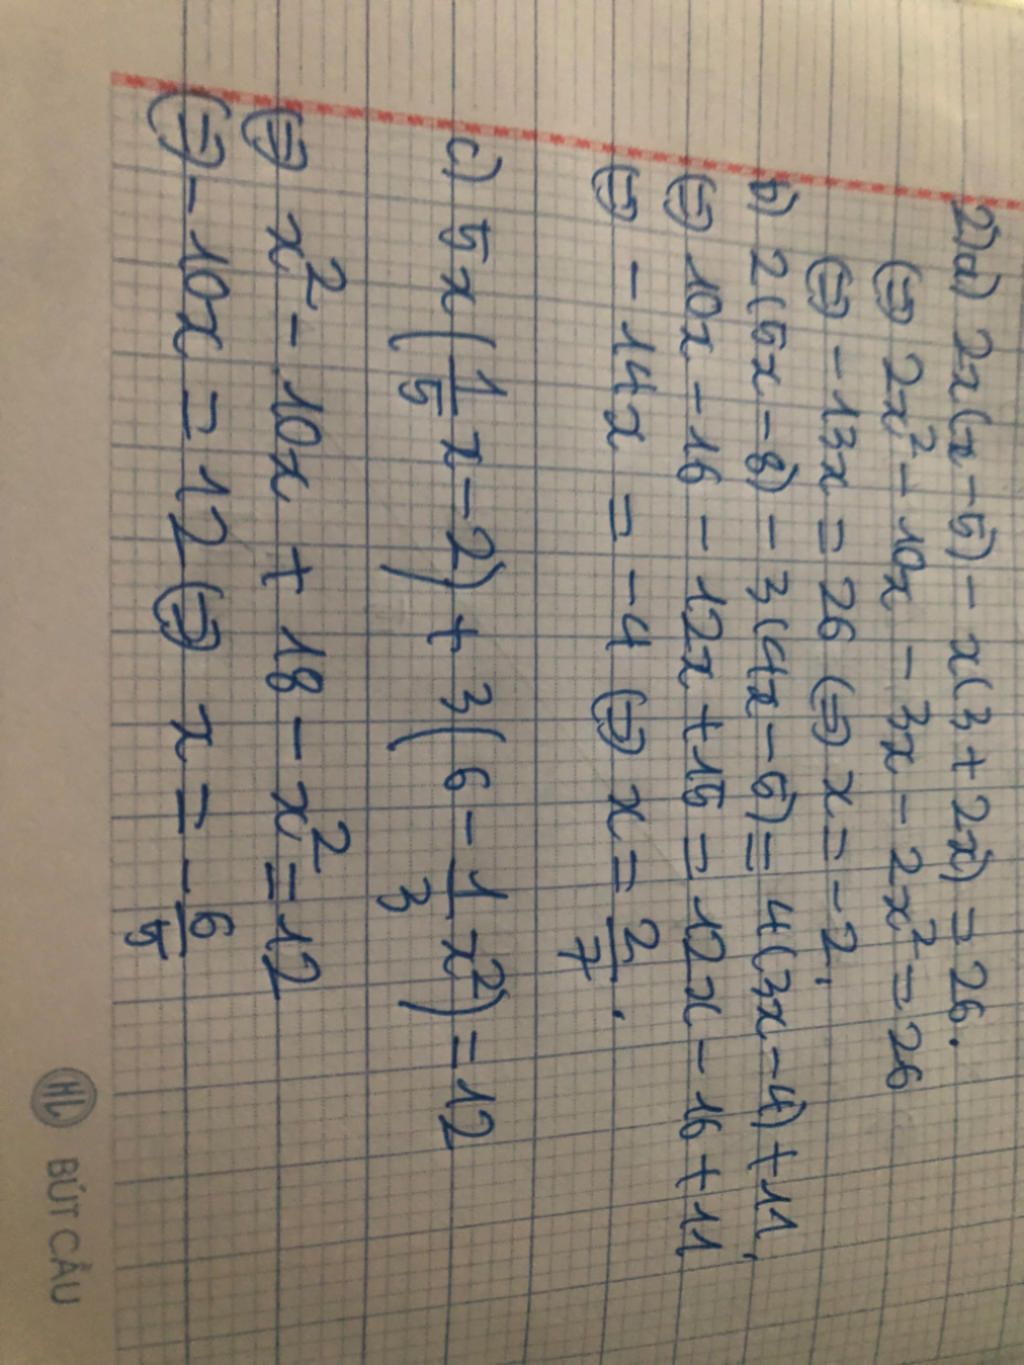 2) a) 2x(x-5) - x(3+2x) = 26.
⇔ 2x² - 10x - 3x - 2x² = 26
⇔ -13x = 26 ⇔ x = -2.
b) 2(5x-8) - 3(4x-5) = 4(3x-4) + 11.
⇔ 10x - 16 - 12x + 15 = 12x - 16 + 11
⇔ -14x = -4 ⇔ x = 2/7.
c) 5x(1/5 x - 2) + 3(6 - 1/3 x²) = 12
⇔ x² - 10x + 18 - x² = 12
⇔ -10x = 12 ⇔ x = -6/5
HL BÚT CẦU